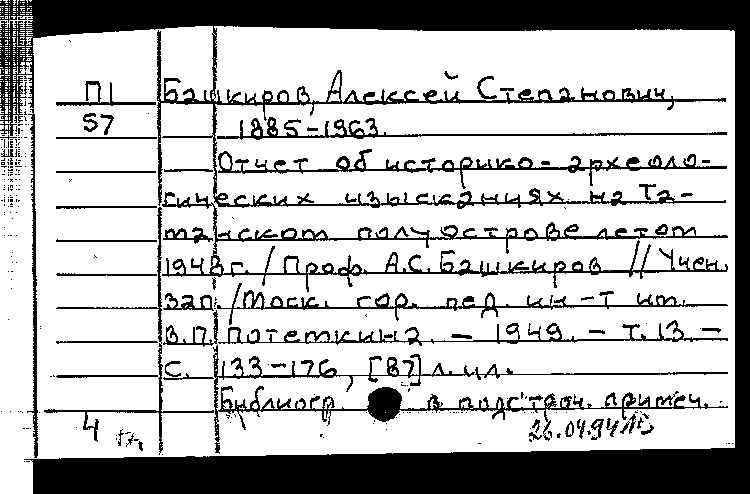 П1 Башкиров, Алексей Степанович,
57 1885-1963.
Отчет об историко-археоло-
гических изысканиях на Та-
манском полуострове летом
1948 г. / Проф. А.С. Башкиров // Учен.
зап. / Моск. гор. пед. ин-т им.
В.П. Потемкина. - 1949. - Т. 13. -
С. 133-176, [87] л. ил.
Библиогр. в подстроч. примеч.
4 26.04.94